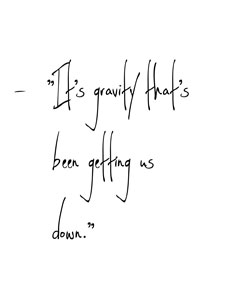 - "It's gravity that's
been getting us
down."